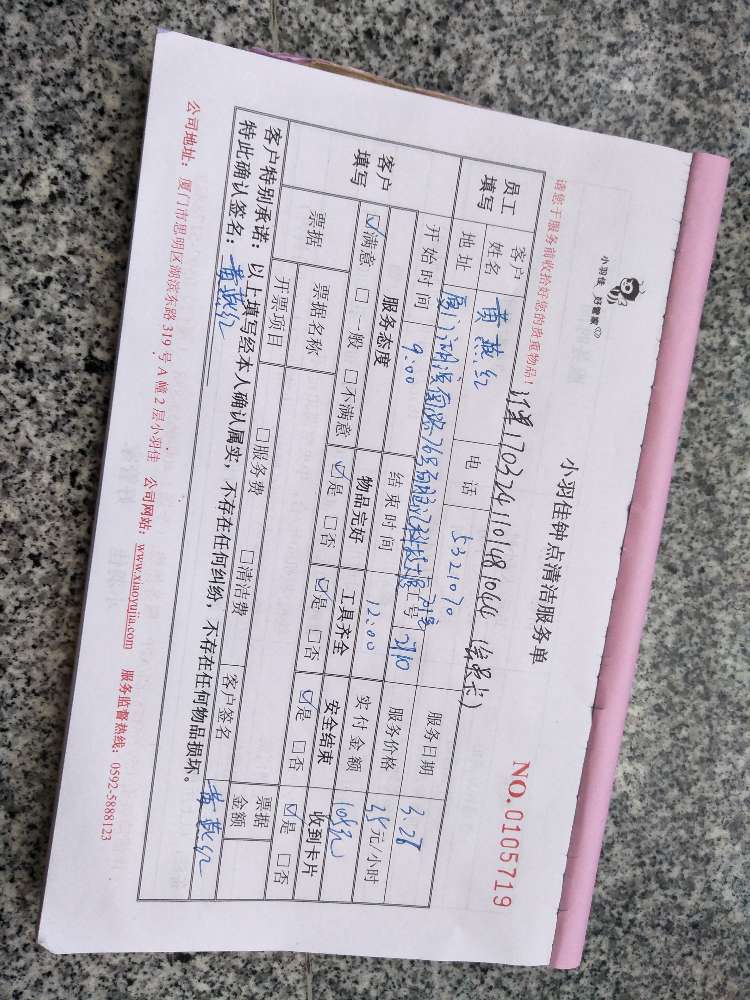 小羽佳 好管家
小羽佳钟点清洁服务单
NO.0105719
请您于服务前收拾好您的贵重物品!
订单1703241101481044
员工填写 客户姓名 黄燕红 电话 5321070 服务日期 3.28
地址 厦门湖滨南路76号 工号 2710 服务价格 35元/小时
客户填写 开始时间 9:00 结束时间 12:00 实付金额 105元
服务态度 物品完好 工具齐全 安全结束 收到卡片
☑满意 □一般 □不满意 ☑是 □否 ☑是 □否 ☑是 □否 ☑是 □否
票据 票据名称 票据金额
开票项目 □服务费 □清洁费 客户签名 黄燕红
客户特别承诺:以上填写经本人确认属实,不存在任何纠纷,不存在任何物品损坏。
特此确认签名:黄燕红
公司地址:厦门市思明区湖滨东路319号A幢2层小羽佳 公司网站:www.xiaoyujia.com 服务监督热线:0592-5888123